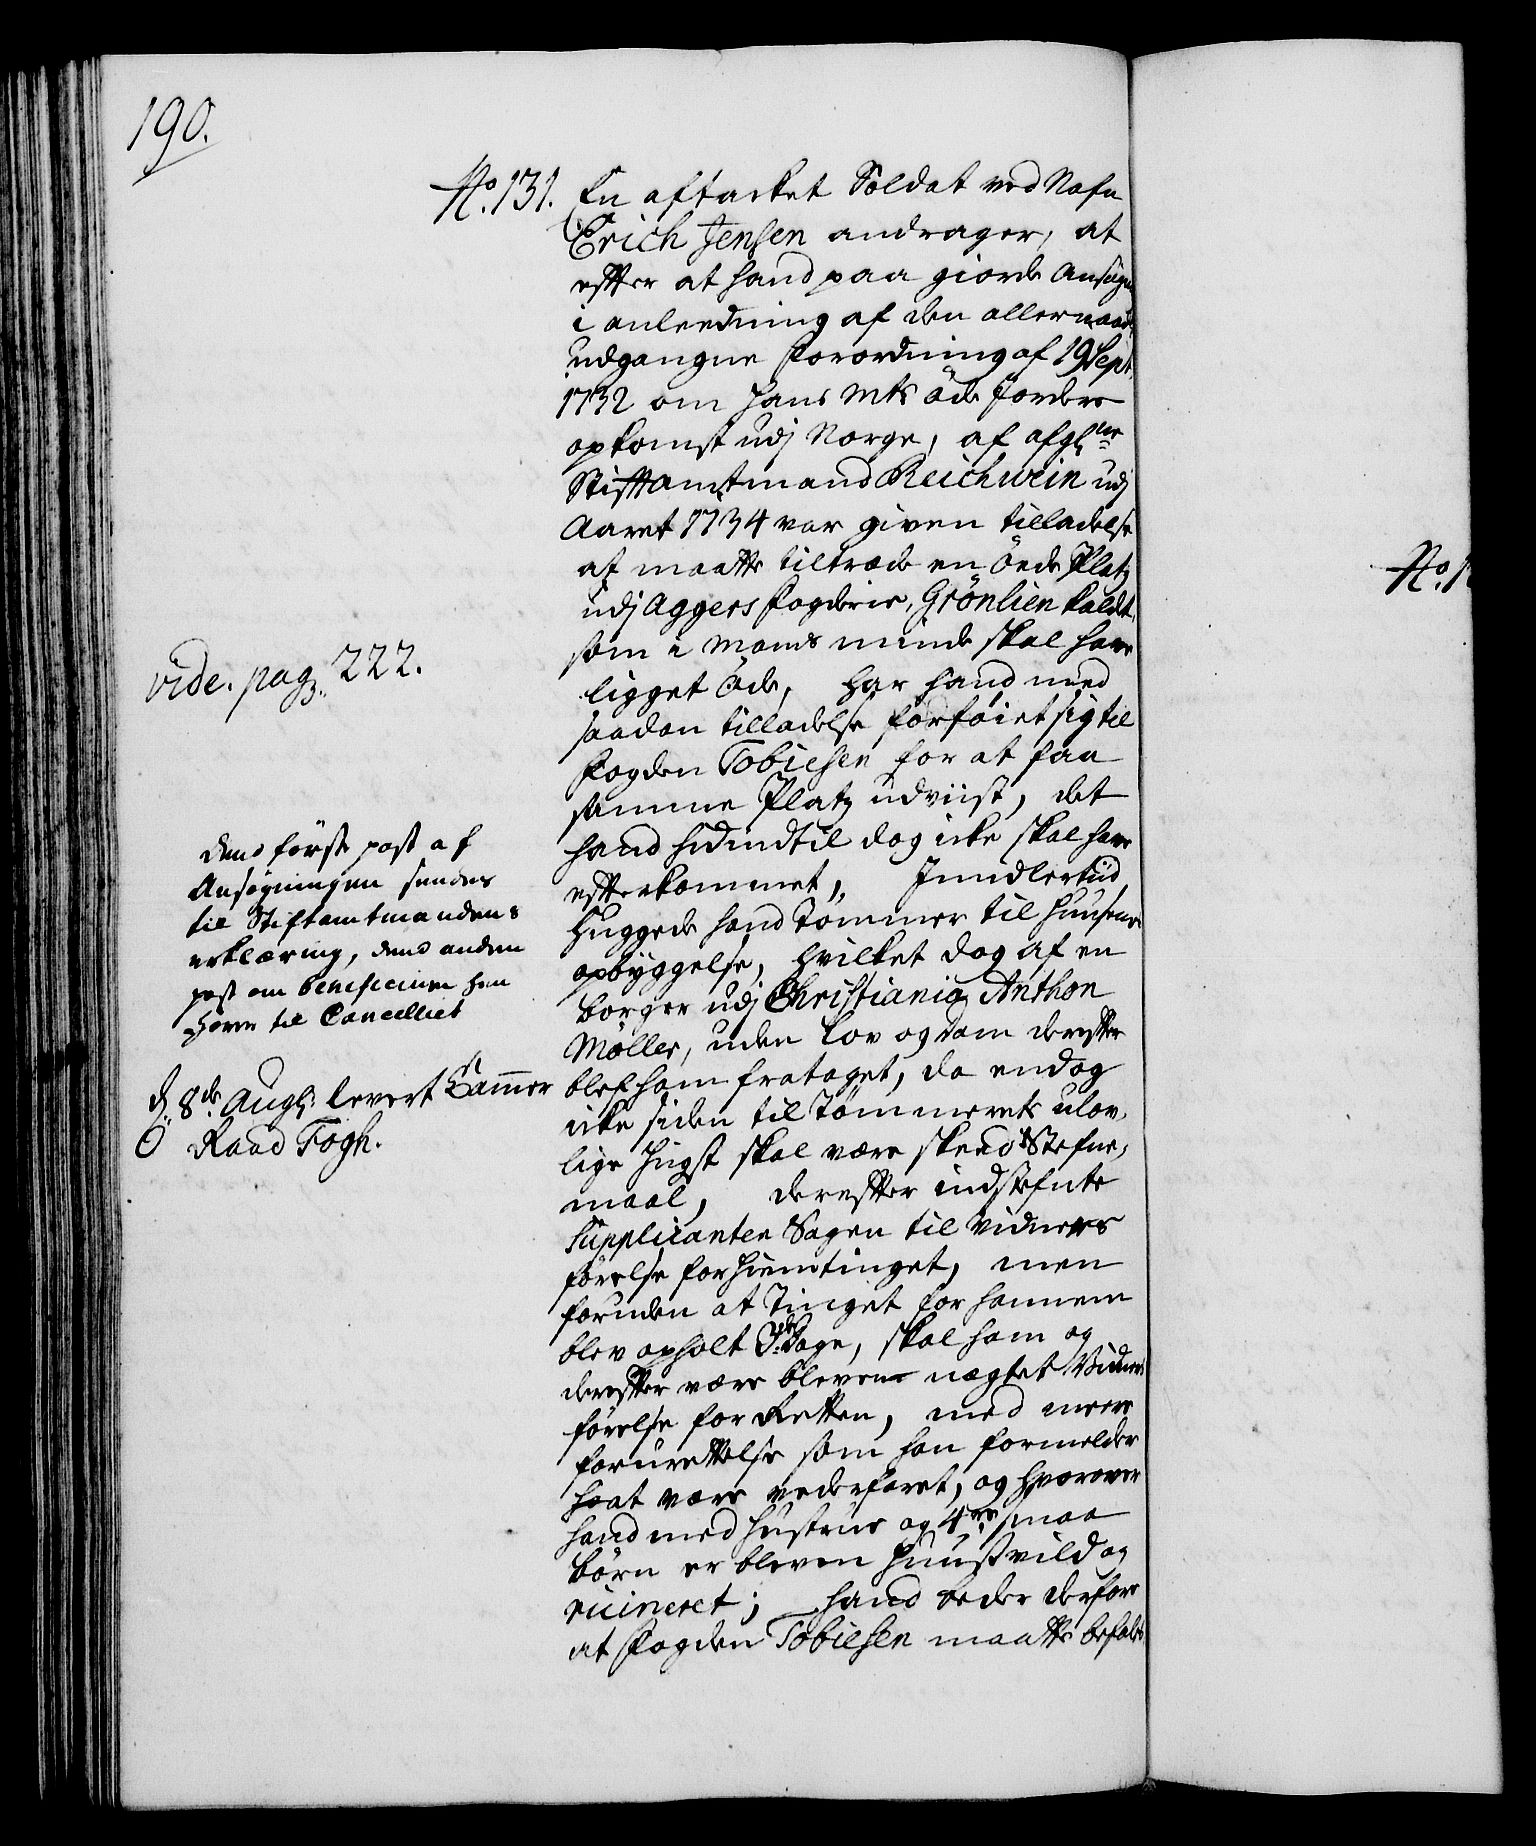 190.
No. 131. En aftacket Soldat ved Nafn
Erich Jensen andrager, at
effter at hand paa giorde Ansøgn
i anleedning af den allernaad
udgangne Forordning af 19 Sept.
1732 om Hans Mts Øde Jorders
opkomst udj Norge, af afgl. ne
Stifftamtmand Reichwein udj
Aaret 1734 var given tilladelse
at maatte tiltræde en Øede Platz
udj Aggers Fogderie, Grönlien kaldt,
som i Mands minde skal have
ligget Øde, har hand med
saadan tilladelse forföiet sig til
Fogden Tobiesen for at faa
samme Platz udviist, det
hand hidindtil dog icke skal have
efterkommet, Jmidlertiid
Huggede hand Tømmer til Huusenes
opbyggelse, hvilket dog af en
borger udj Christiania Anthon
Möller, uden Lov og dom dereffter
blef ham frataget, da endog
icke siden til Tømmerets ulov-
lige Hugst skal være skeed Stefne-
maal, dereffter indstefnte
Supplicanten Sagen til Vidners
førelse for Hiemtinget, men
foruden at Tinget for hannem
blev opholt 3de Dage, skal ham og
dereffter være bleven nægtet Vidners
førelse for Retten, med meere
forurettelse som han formelder
sig at være vederfaret, og hvorover
hand med Hustrue og 4re smaa
børn er bleven Huusvild og
ruineret; hand beder derfore
at Fogden Tobiesen maatte befales
vide. pag. 222.
Dend første post af
Ansøgningen sendes
til Stiftamtmandens
erklæring, dend anden
post om beneficium hen
hører til Cancelliet
d. 8de Augs: levert Cammer
Raad Fogh.
No. 1